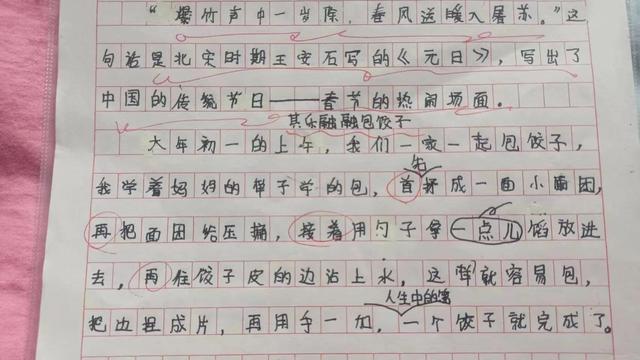 “爆竹声中一岁除，春风送暖入屠苏。”这
句话是北宋时期王安石写的《元日》，写出了
中国的传统节日——春节的热闹场面。
其乐融融包饺子
大年初一的上午，我们一家一起包饺子，
先
我学着妈妈的样子学的包，首抔成一面小面团，
再把面团给压扁，接着用勺子拿一点儿馅放进
去，再往饺子皮的边沾上水，这样就容易包，
人生中的第
把边捏成片，再用手一加，一个饺子就完成了。